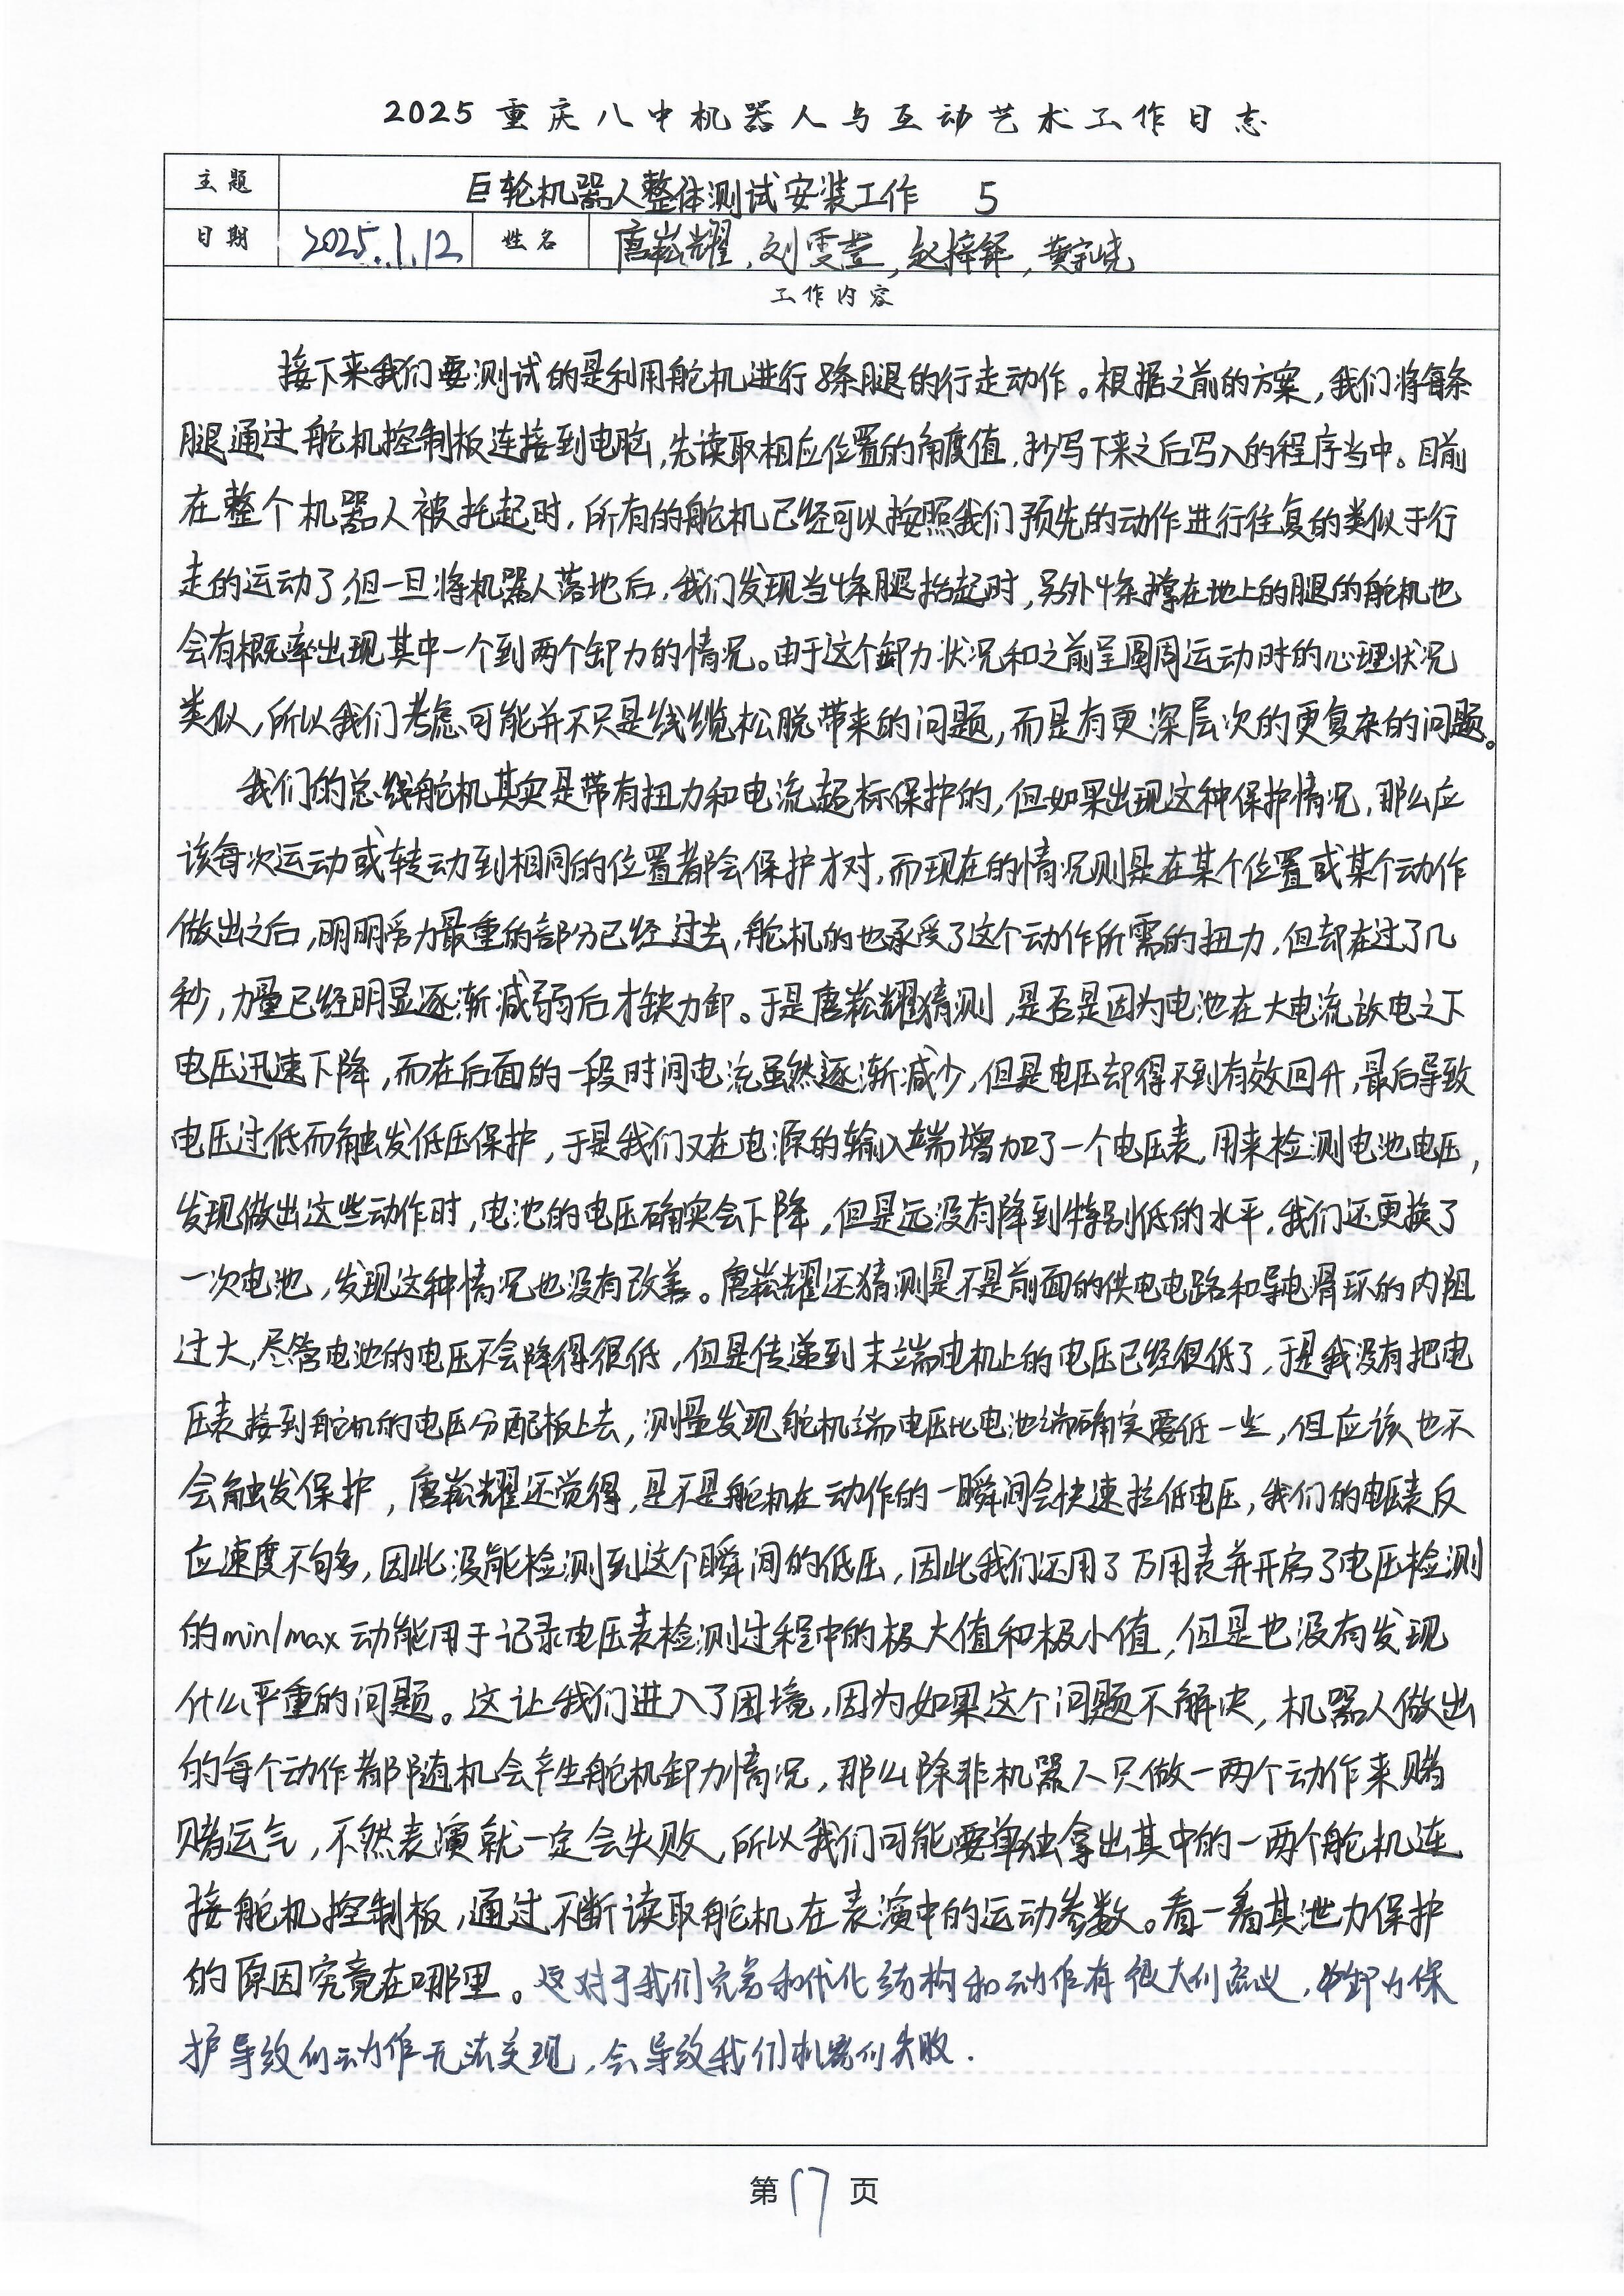 2025重庆八中机器人与互动艺术工作日志
主题 巨轮机器人整体测试安装工作 5
日期 2025.1.12 姓名 唐崧耀,刘雯萱,赵梓铎,黄宗晓
工作内容
接下来我们要测试的是利用舵机进行8条腿的行走动作。根据之前的方案,我们将每条
腿通过舵机控制板连接到电脑,先读取相应位置的角度值,抄写下来之后写入的程序当中。目前
在整个机器人被托起时,所有的舵机已经可以按照我们预先的动作进行往复的类似于行
走的运动了,但一旦将机器人落地后,我们发现当4条腿抬起时,另外4条撑在地上的腿的舵机也
会有概率出现其中一个到两个卸力的情况。由于这个卸力状况和之前呈圆周运动时的心理状况
类似,所以我们考虑可能并不只是线缆松脱带来的问题,而是有更深层次的更复杂的问题。
我们的总线舵机其实是带有扭力和电流超标保护的,但如果出现这种保护情况,那么应
该每次运动或转动到相同的位置都会保护才对,而现在的情况则是在某个位置或某个动作
做出之后,明明受力最重的部分已经过去,舵机的也承受了这个动作所需的扭力,但却在过了几
秒,力量已经明显逐渐减弱后才缺力卸。于是唐崧耀猜测,是否是因为电池在大电流放电之下
电压迅速下降,而在后面的一段时间电流虽然逐渐减少,但是电压却得不到有效回升,最后导致
电压过低而触发低压保护,于是我们又在电源的输入端增加了一个电压表,用来检测电池电压,
发现做出这些动作时,电池的电压确实会下降,但是远没有降到特别低的水平,我们还更换了
一次电池,发现这种情况也没有改善。唐崧耀还猜测是不是前面的供电电路和导电滑环的内阻
过大,尽管电池的电压不会降得很低,但是传递到末端电机上的电压已经很低了,于是我没有把电
压表接到舵机的电压分配板上去,测量发现舵机端电压比电池端确实要低一些,但应该也不
会触发保护,唐崧耀还觉得,是不是舵机在动作的一瞬间会快速拉低电压,我们的电压表反
应速度不够多,因此没能检测到这个瞬间的低压,因此我们还用了万用表并开启了电压检测
的min/max动能用于记录电压表检测过程中的极大值和极小值,但是也没有发现
什么严重的问题。这让我们进入了困境,因为如果这个问题不解决,机器人做出
的每个动作都随机会产生舵机卸力情况,那么除非机器人只做一两个动作来赌
赌运气,不然表演就一定会失败,所以我们可能要单独拿出其中的一两个舵机连
接舵机控制板,通过不断读取舵机在表演中的运动参数。看一看其泄力保护
的原因究竟在哪里。这对于我们完善和优化结构和动作有很大的意义,卸力保
护导致的动作无法实现,会导致我们机器的失败.
第17页